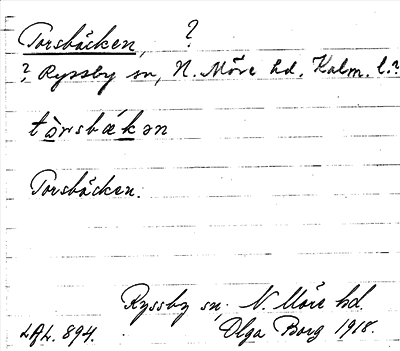 Torsbäcken, ?
? Ryssby sn, N. Möre hd. Kalm. l.?
tòrsbäkən
Torsbäcken.
Ryssby sn, N. Möre hd.
LAL. 894. Olga Borg 1918.